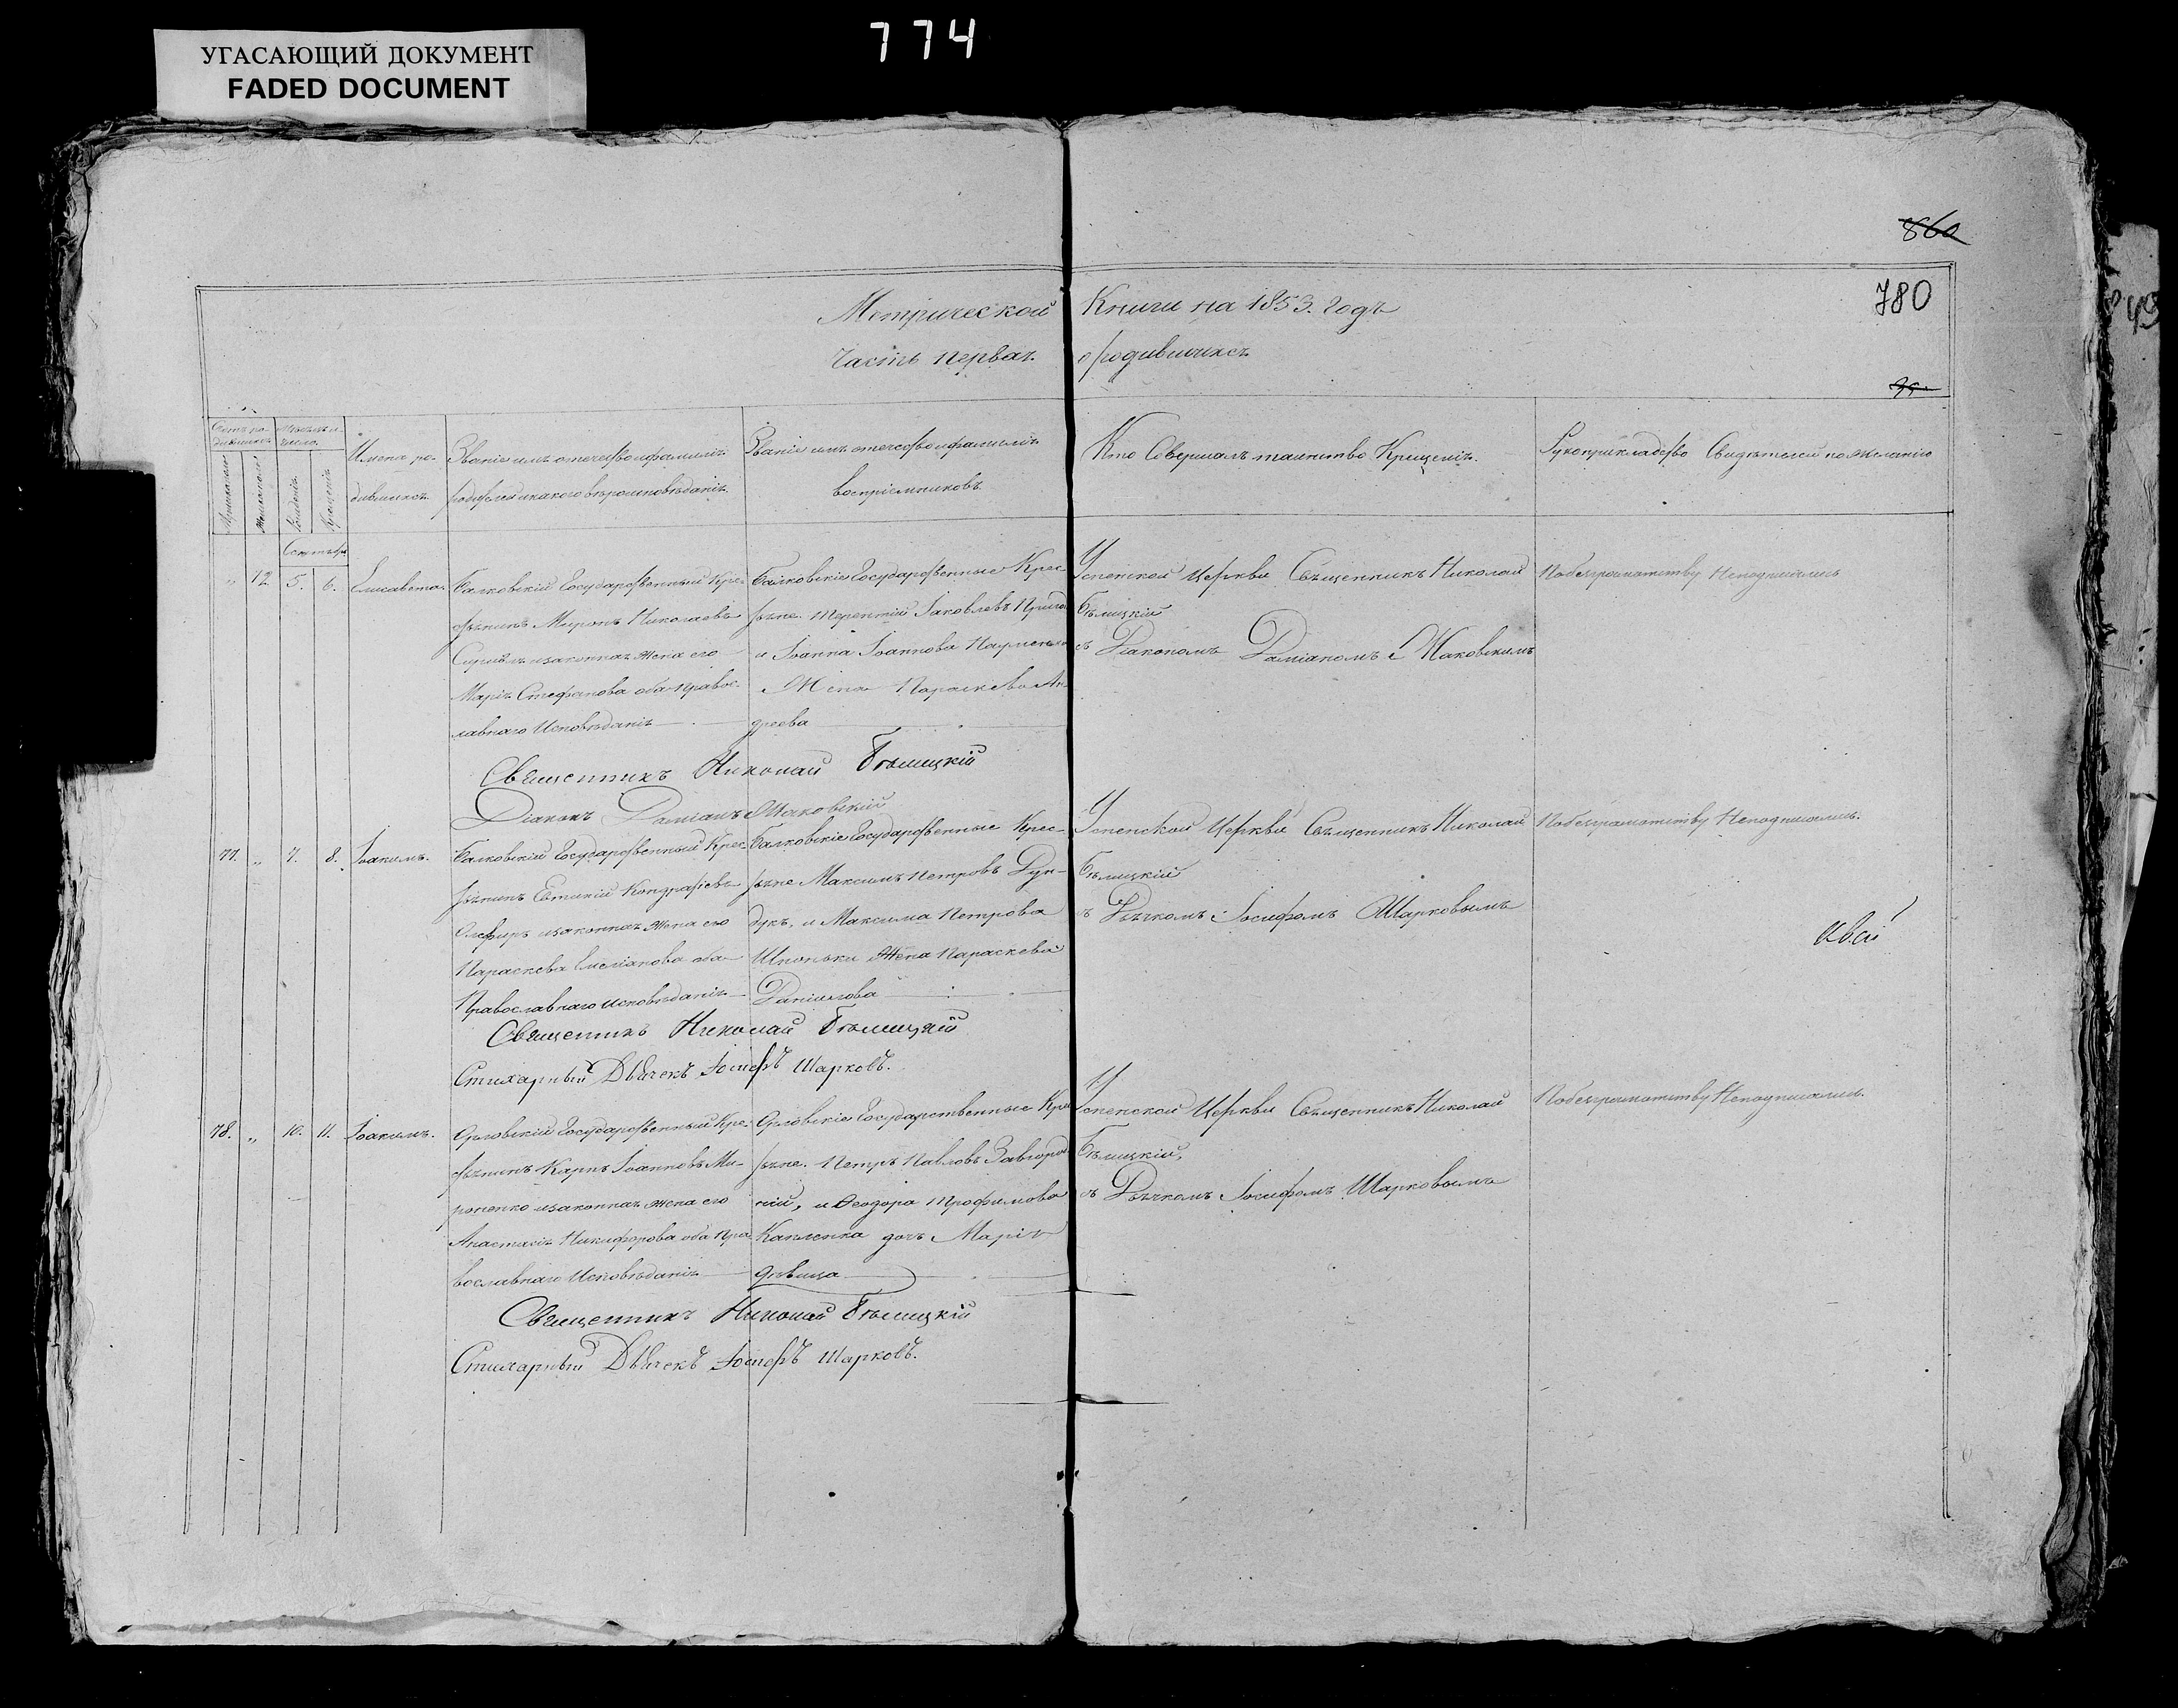 774
УГАСАЮЩИЙ ДОКУМЕНТ
FADED DOCUMENT
860
780
Метрической Книги на 1853. годъ
Часть первая. о родившихся
Счетъ ро-
дившихся
Мѣсяцъ и
число.
Мужескаго
Женскаго
Рожденія.
Крещенія.
Имена ро-
дившихся.
Званіе имъ отечество и фамилія
родителей и какого вѣроисповѣданія.
Званіе имъ отечество и фамилія
воспріемниковъ
Кто Совершалъ таинство Крещенія.
Рукоприкладство Свидѣтелей по желанію
Сентябрь
„ 72 5. 6. Елисавета.
Балковскій Государственный Кре-
стьянинъ Миронъ Николаевъ
и законная жена его
Марія Стефанова оба право-
славнаго Исповѣданія
Балковскіе Государственные Крес-
тьяне. Терентій Іаковлевъ
и Іоанна Іоаннова
Жена Параскева Ан-
дреева
Успенской Церкви Священникъ Николай
Бѣлицкій
съ Діакономъ Даміаномъ Маковскимъ
По безграмотству Неподписались
Священникъ Николай Бѣлицкій
Діаконъ Даміанъ Маковскій
77. „ 7. 8. Іоакимъ.
Балковскій Государственный Крес-
тьянинъ Евтихій Кондратіевъ
и законная жена его
Параскева Емеліанова оба
Православнаго исповѣданія
Балковскіе Государственные Крес-
тьяне Максимъ Петровъ Дун-
дукъ, и Максима Петрова
Шпоньки Жена Параскева
Даніилова
Успенской Церкви Священникъ Николай
Бѣлицкій
съ Дьячкомъ Іосифомъ Шарковымъ
По безграмотству Неподписались.
Священникъ Николай Бѣлицкій
Стихарный Дьячекъ Іосифъ Шарковъ.
78. „ 10. 11. Іоакимъ.
Орловскій Государственный Кре-
стьянинъ Карпъ Іоанновъ Ми-
роненко и законная жена его
Анастасія Никифорова оба Пра-
вославнаго Исповѣданія
Орловскіе Государственные Кре-
стьяне. Петръ Павловъ Завгород-
ній, и Ѳеодора Трофимова
Капленка дочь Марія
дѣвица
Успенской Церкви Священникъ Николай
Бѣлицкій,
съ Дьячкомъ Іосифомъ Шарковымъ
По безграмотству Неподписались.
Священникъ Николай Бѣлицкій
Стихарный Дьячекъ Іосифъ Шарковъ.